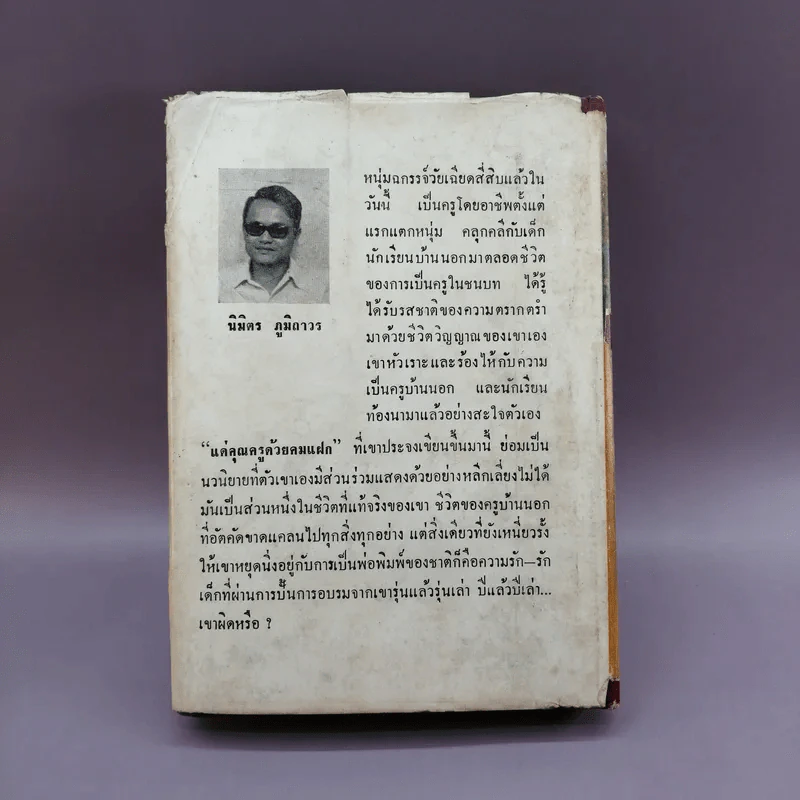 หนุ่มฉกรรจ์วัยเฉียดสี่สิบแล้วใน
วันนี้ เป็นครูโดยอาชีพตั้งแต่
แรกแตกหนุ่ม คลุกคลีกับเด็ก
นักเรียนบ้านนอกมาตลอดชีวิต
ของการเป็นครูในชนบท ได้รู้
ได้รับรสชาติของความตรากตรำ
มาด้วยชีวิตวิญญาณของเขาเอง
เขาหัวเราะและร้องไห้กับความ
เป็นครูบ้านนอก และนักเรียน
ท้องนามาแล้วอย่างสะใจตัวเอง
นิมิตร ภูมิถาวร
“แด่คุณครูด้วยคมแฝก” ที่เขาประจงเขียนขึ้นมานี้ ย่อมเป็น
นวนิยายที่ตัวเขาเองมีส่วนร่วมแสดงด้วยอย่างหลีกเลี่ยงไม่ได้
มันเป็นส่วนหนึ่งในชีวิตที่แท้จริงของเขา ชีวิตของครูบ้านนอก
ที่อัตคัดขาดแคลนไปทุกสิ่งทุกอย่าง แต่สิ่งเดียวที่ยังเหนี่ยวรั้ง
ให้เขาหยุดนิ่งอยู่กับการเป็นพ่อพิมพ์ของชาติก็คือความรัก—รัก
เด็กที่ผ่านการปั้นการอบรมจากเขารุ่นแล้วรุ่นเล่า ปีแล้วปีเล่า...
เขาผิดหรือ ?